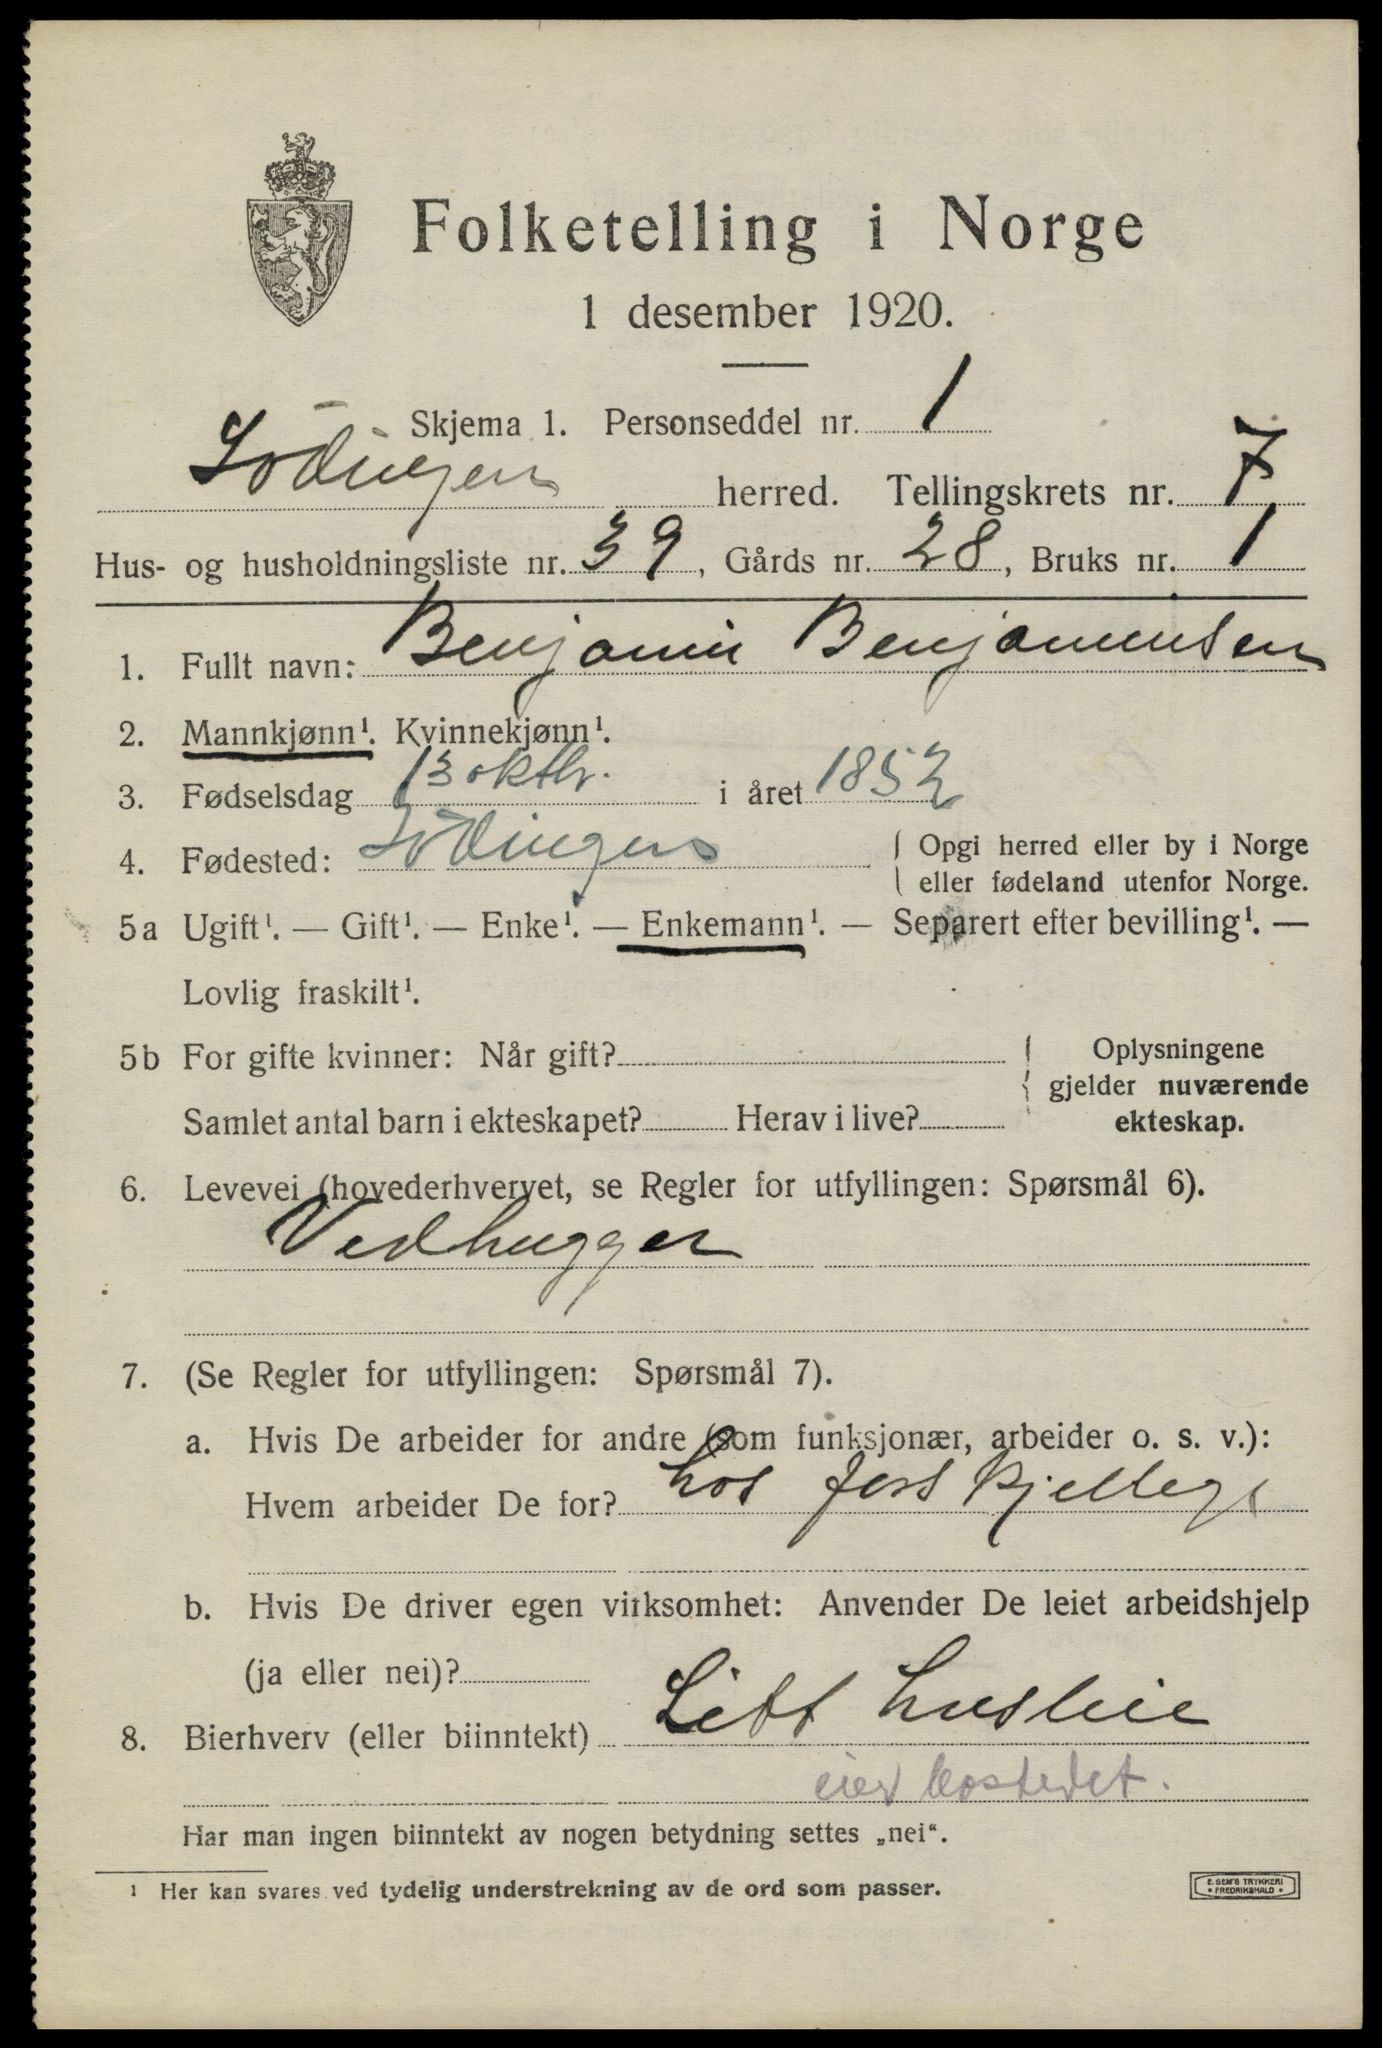 Folketelling i Norge
1 desember 1920.
Skjema 1. Personseddel nr. 1
Lödingen herred. Tellingskrets nr. 7
Hus- og husholdningsliste nr. 39, Gårds nr. 28, Bruks nr. 1
1. Fullt navn: Benjamin Benjaminsen
2. Mannkjønn¹. Kvinnekjønn¹.
3. Fødselsdag 13 oktbr. i året 1852
4. Fødested: Lödingen { Opgi herred eller by i Norge
eller fødeland utenfor Norge.
5a Ugift¹. — Gift¹. — Enke¹. — Enkemann¹. — Separert efter bevilling¹. —
Lovlig fraskilt¹.
5b For gifte kvinner: Når gift? { Oplysningene
gjelder nuværende
Samlet antal barn i ekteskapet? Herav i live? ekteskap.
6. Levevei (hovederhvervet, se Regler for utfyllingen: Spørsmål 6).
Vedhugger
7. (Se Regler for utfyllingen: Spørsmål 7).
a. Hvis De arbeider for andre (som funksjonær, arbeider o. s. v.):
Hvem arbeider De for? hos
b. Hvis De driver egen virksomhet: Anvender De leiet arbeidshjelp
(ja eller nei)?
8. Bierhverv (eller biinntekt) Litt husleie
eier bostedet.
Har man ingen biinntekt av nogen betydning settes „nei“.
¹ Her kan svares ved tydelig understrekning av de ord som passer.
E. SEM'S TRYKKERI
• FREDRIKSHALD •